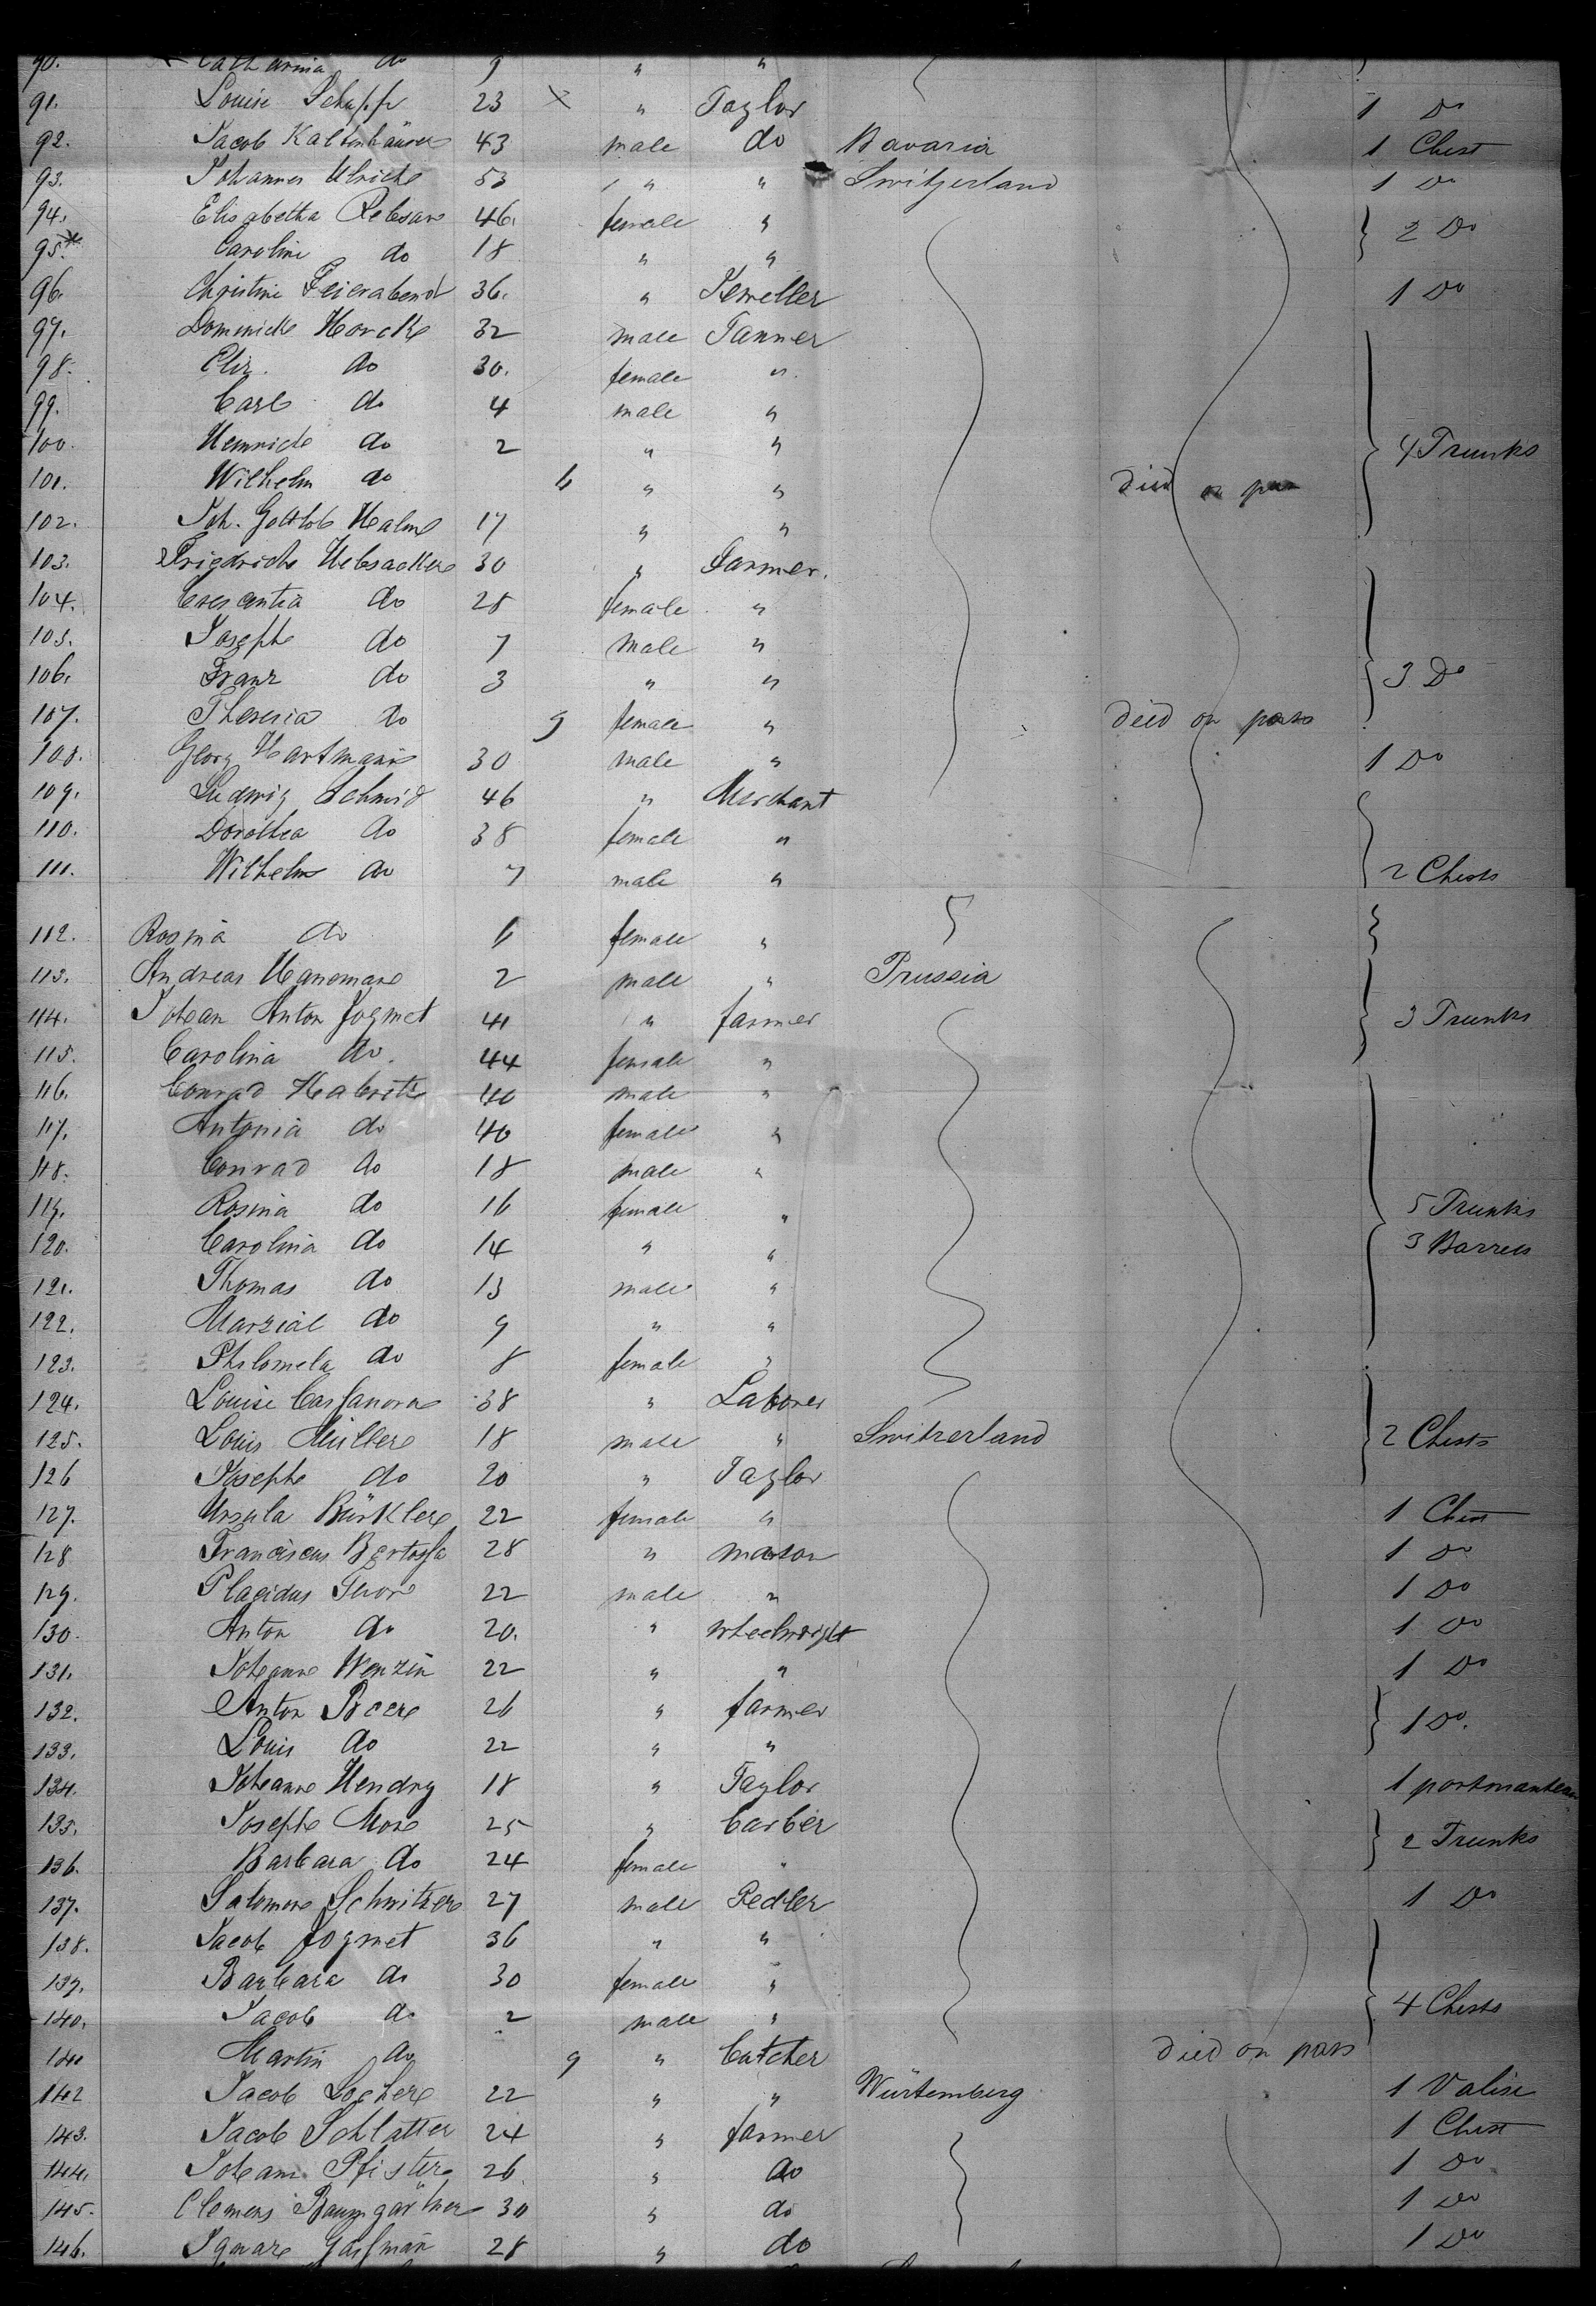 90. Catharina do 9 " "
91. Louise Schupp 23 " Taylor 1 Do
92. Jacob Kaltenhäuser 43 male do Bavaria 1 Chest
93. Johannes Ulrich 53 " " Switzerland 1 Do
94. Elisabetha 46. female " 2 Do
95. Caroline do 18 " "
96. Christine Feierabend 36. " Jeweller 1 Do
97. Dominick 32 male Tanner
98. Elis. do 30. female "
99. Carl do 4 male "
100. Heinrich do 2 " " 4 Trunks
101. Wilhelm do 6 " " died on pass
102. Joh. Gottlob 17 " "
103. Friedrich 30 " Farmer.
104. Crescentia do 28 female "
105. Joseph do 7 male "
106. Franz do 3 " " 3 Do
107. Theresia do 9 female " died on pass
108. Georg Hartmann 30 male " 1 Do
109. Ludwig Schmid 46 " Merchant
110. Dorothea do 38 female "
111. Wilhelm do 7 male " 2 Chests
112. Rosina do 6 female "
113. Andreas 2 male " Prussia
114. Johan Anton Jogmet 41 " farmer 3 Trunks
115. Carolina do. 44 female "
116. Conrad 40 male "
117. Antonia do 40 female "
118. Conrad do 18 male "
119. Rosina do 16 female " 5 Trunks
120. Carolina do 14 " " 3 Barrels
121. Thomas do 13 male "
122. Marzial do 9 " "
123. Philomela do 8 female "
124. Louise Cassanova 38 " Laborer
125. Louis Müller 18 male " Switzerland 2 Chests
126 Joseph do 20 " Taylor
127. Ursula Bürkler 22 female " 1 Chest
128 Franciscus Bertossa 28 " mason 1 Do
129. Plagidus 22 male " 1 Do
130. Anton do 20. " wheelwright 1 Do
131. Johann Wenzin 22 " " 1 Do
132. Anton Beer 26 " farmer
133. Louis do 22 " " 1 Do.
134. Johann Hendry 18 " Taylor 1 portmanteau
135. Joseph More 25 " barber
136. Barbara do 24 female " 2 Trunks
137. Salomon Schnitzer 27 male Pedler 1 Do
138. Jacob Jogmet 36 " "
139. Barbara do 30 female "
140. Jacob do 2 male " 4 Chests
141 Martin do 9 " butcher died on pass
142 Jacob Locher 22 " " Würtemberg 1 Valise
143. Jacob Schlatter 24 " farmer 1 Chest
144. Johann Pfister 26 " do 1 Do
145. Clemens Baumgärtner 30 " do 1 Do
146. 28 " do 1 Do